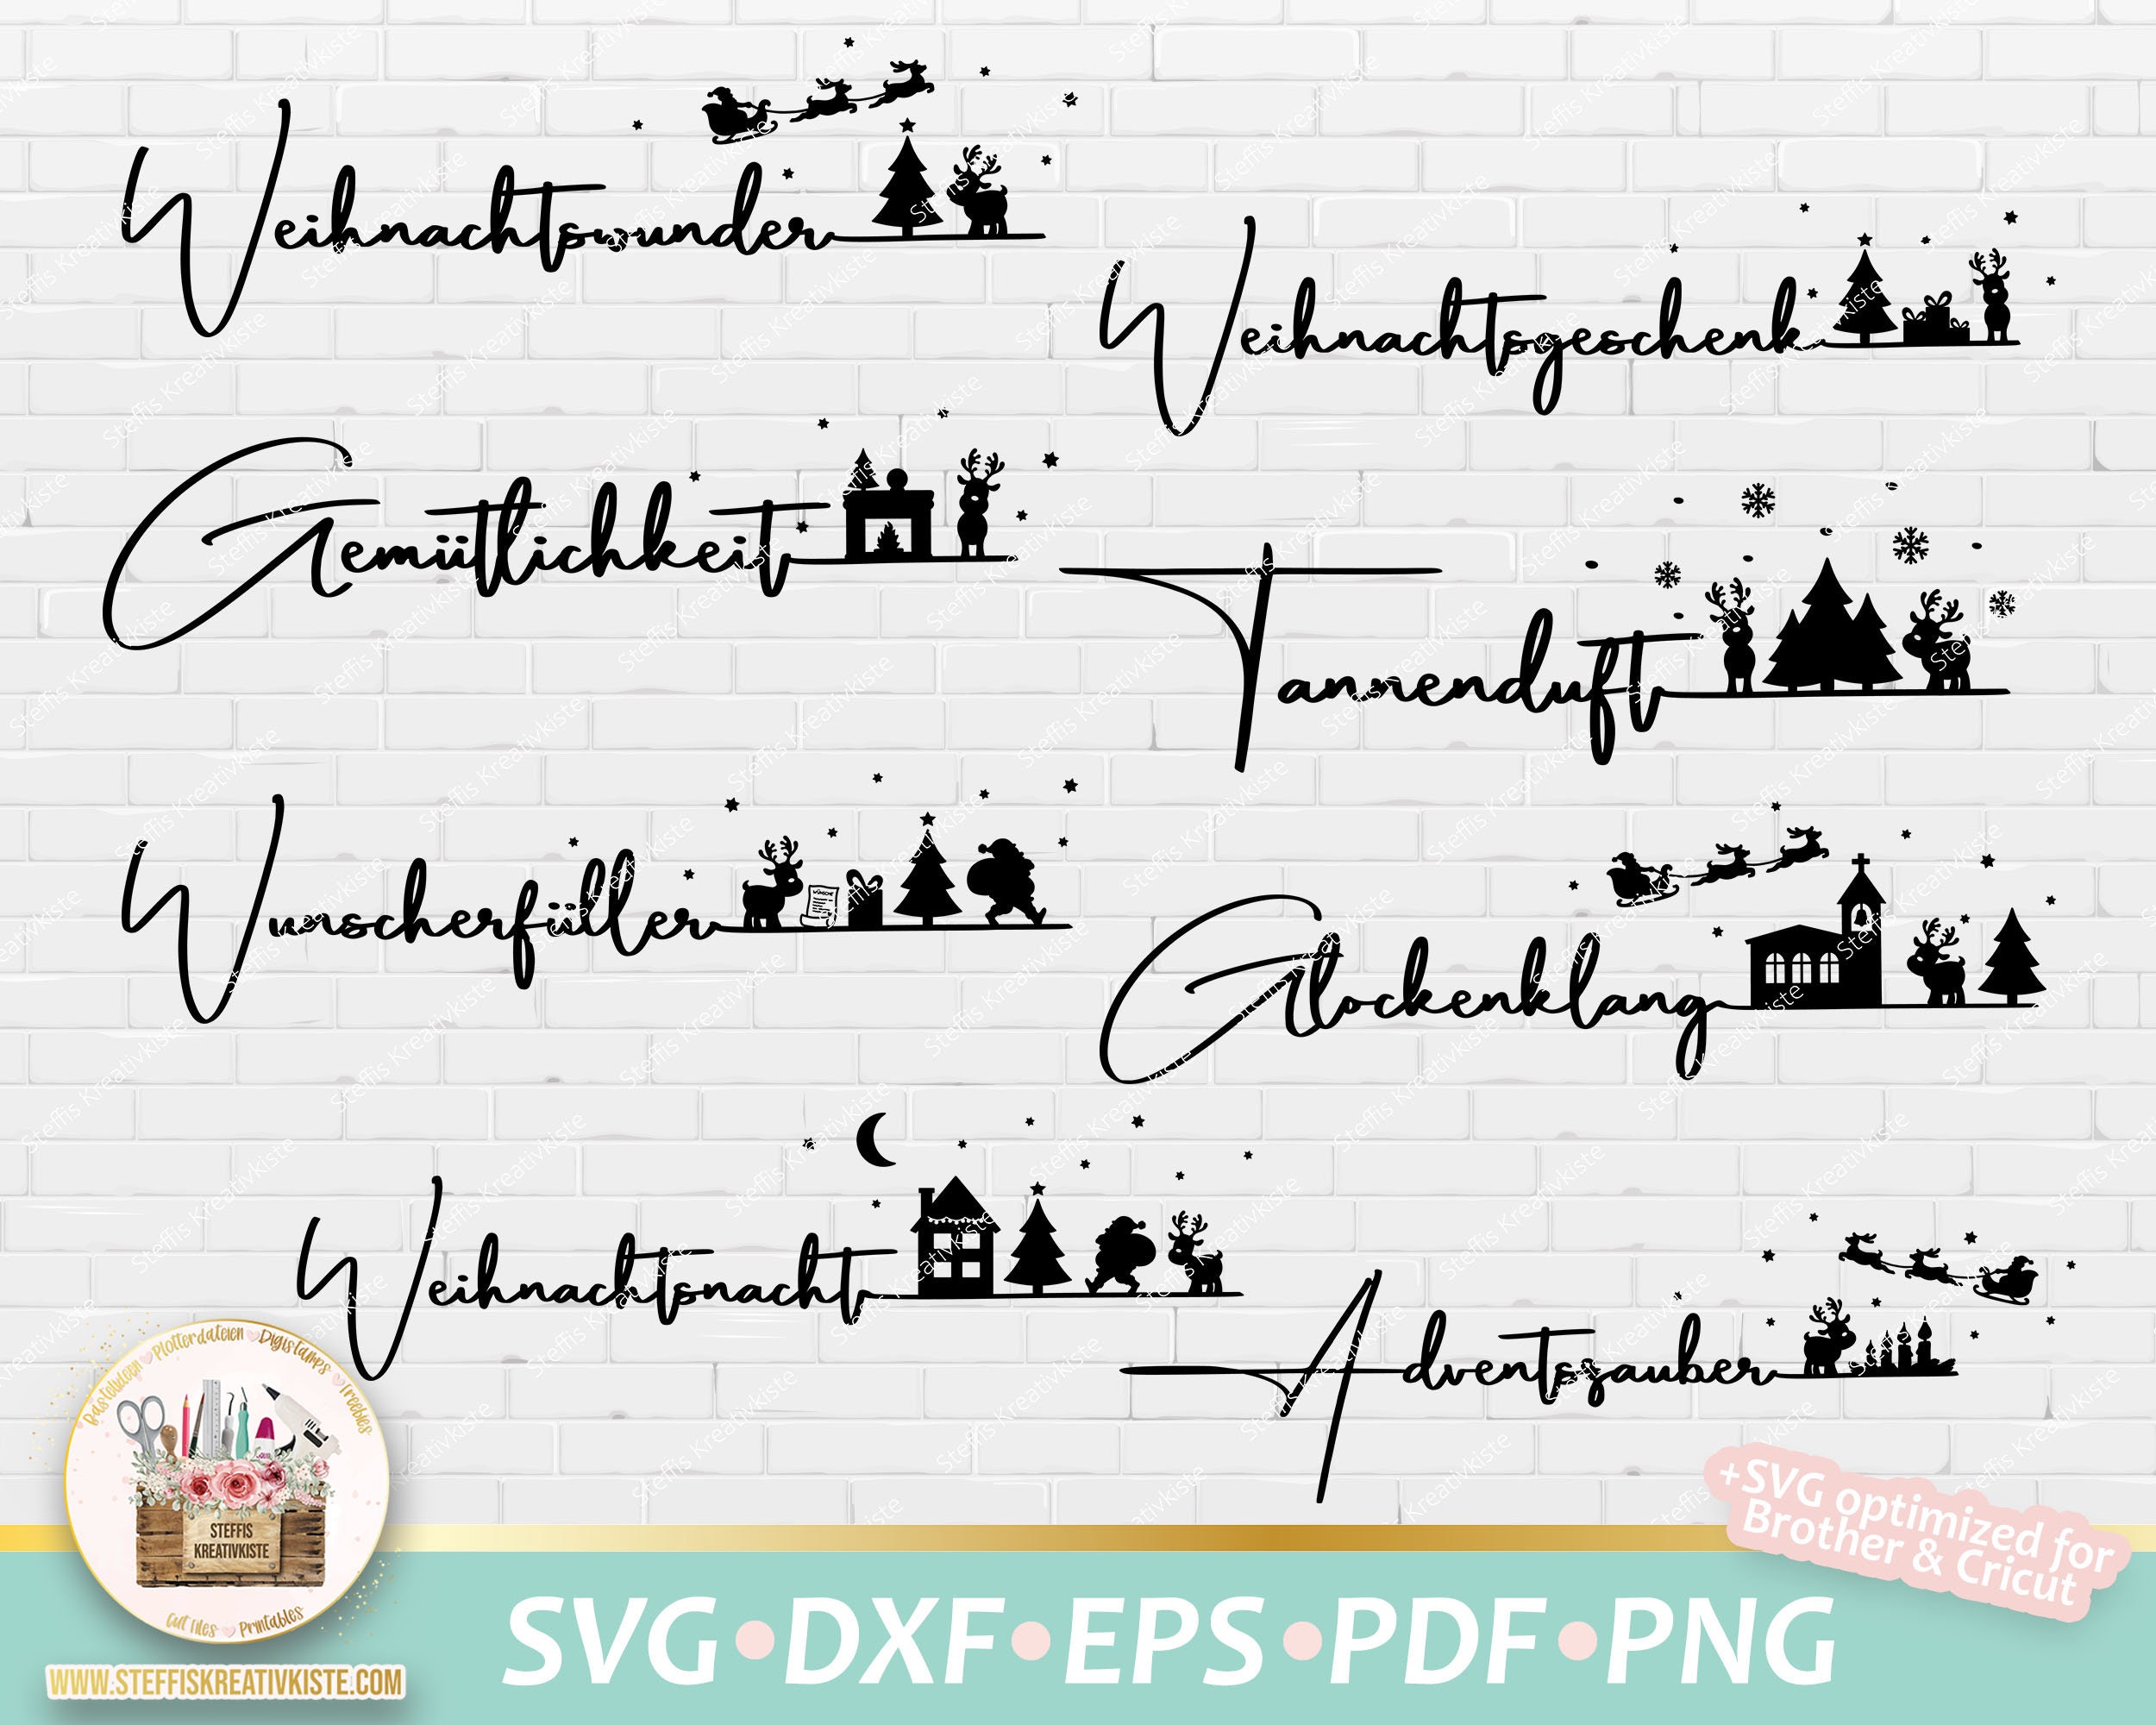 Weihnachtswunder
Weihnachtsgeschenk
Gemütlichkeit
Tannenduft
Wunscherfüller
WÜNSCHE
Glockenklang
Weihnachtsnacht
Adventszauber
Bastelideen Plotterdateien Digistamps Freebies
STEFFIS
KREATIVKISTE
Cut Files Printables
WWW.STEFFISKREATIVKISTE.COM
+SVG optimized for
Brother & Cricut
SVG•DXF•EPS•PDF•PNG
Steffis Kreativkiste